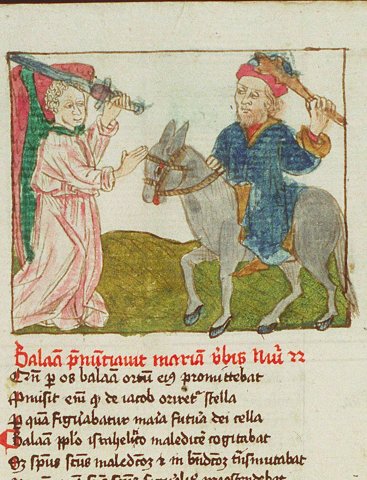 Balaā p̄nūtiavit mariā v̄bis Nūi 22
Cū p os balaā ortū eiꝰ promittebat
Promisit eni ꝙ de iacob oriret stella
P quā figurabatur maria futura dei cella
Balaam pplo israhelito maledice cogitabat
Sꝫ spūs scūs maledcōꝫ ī bndcōꝫ tnsmutabat